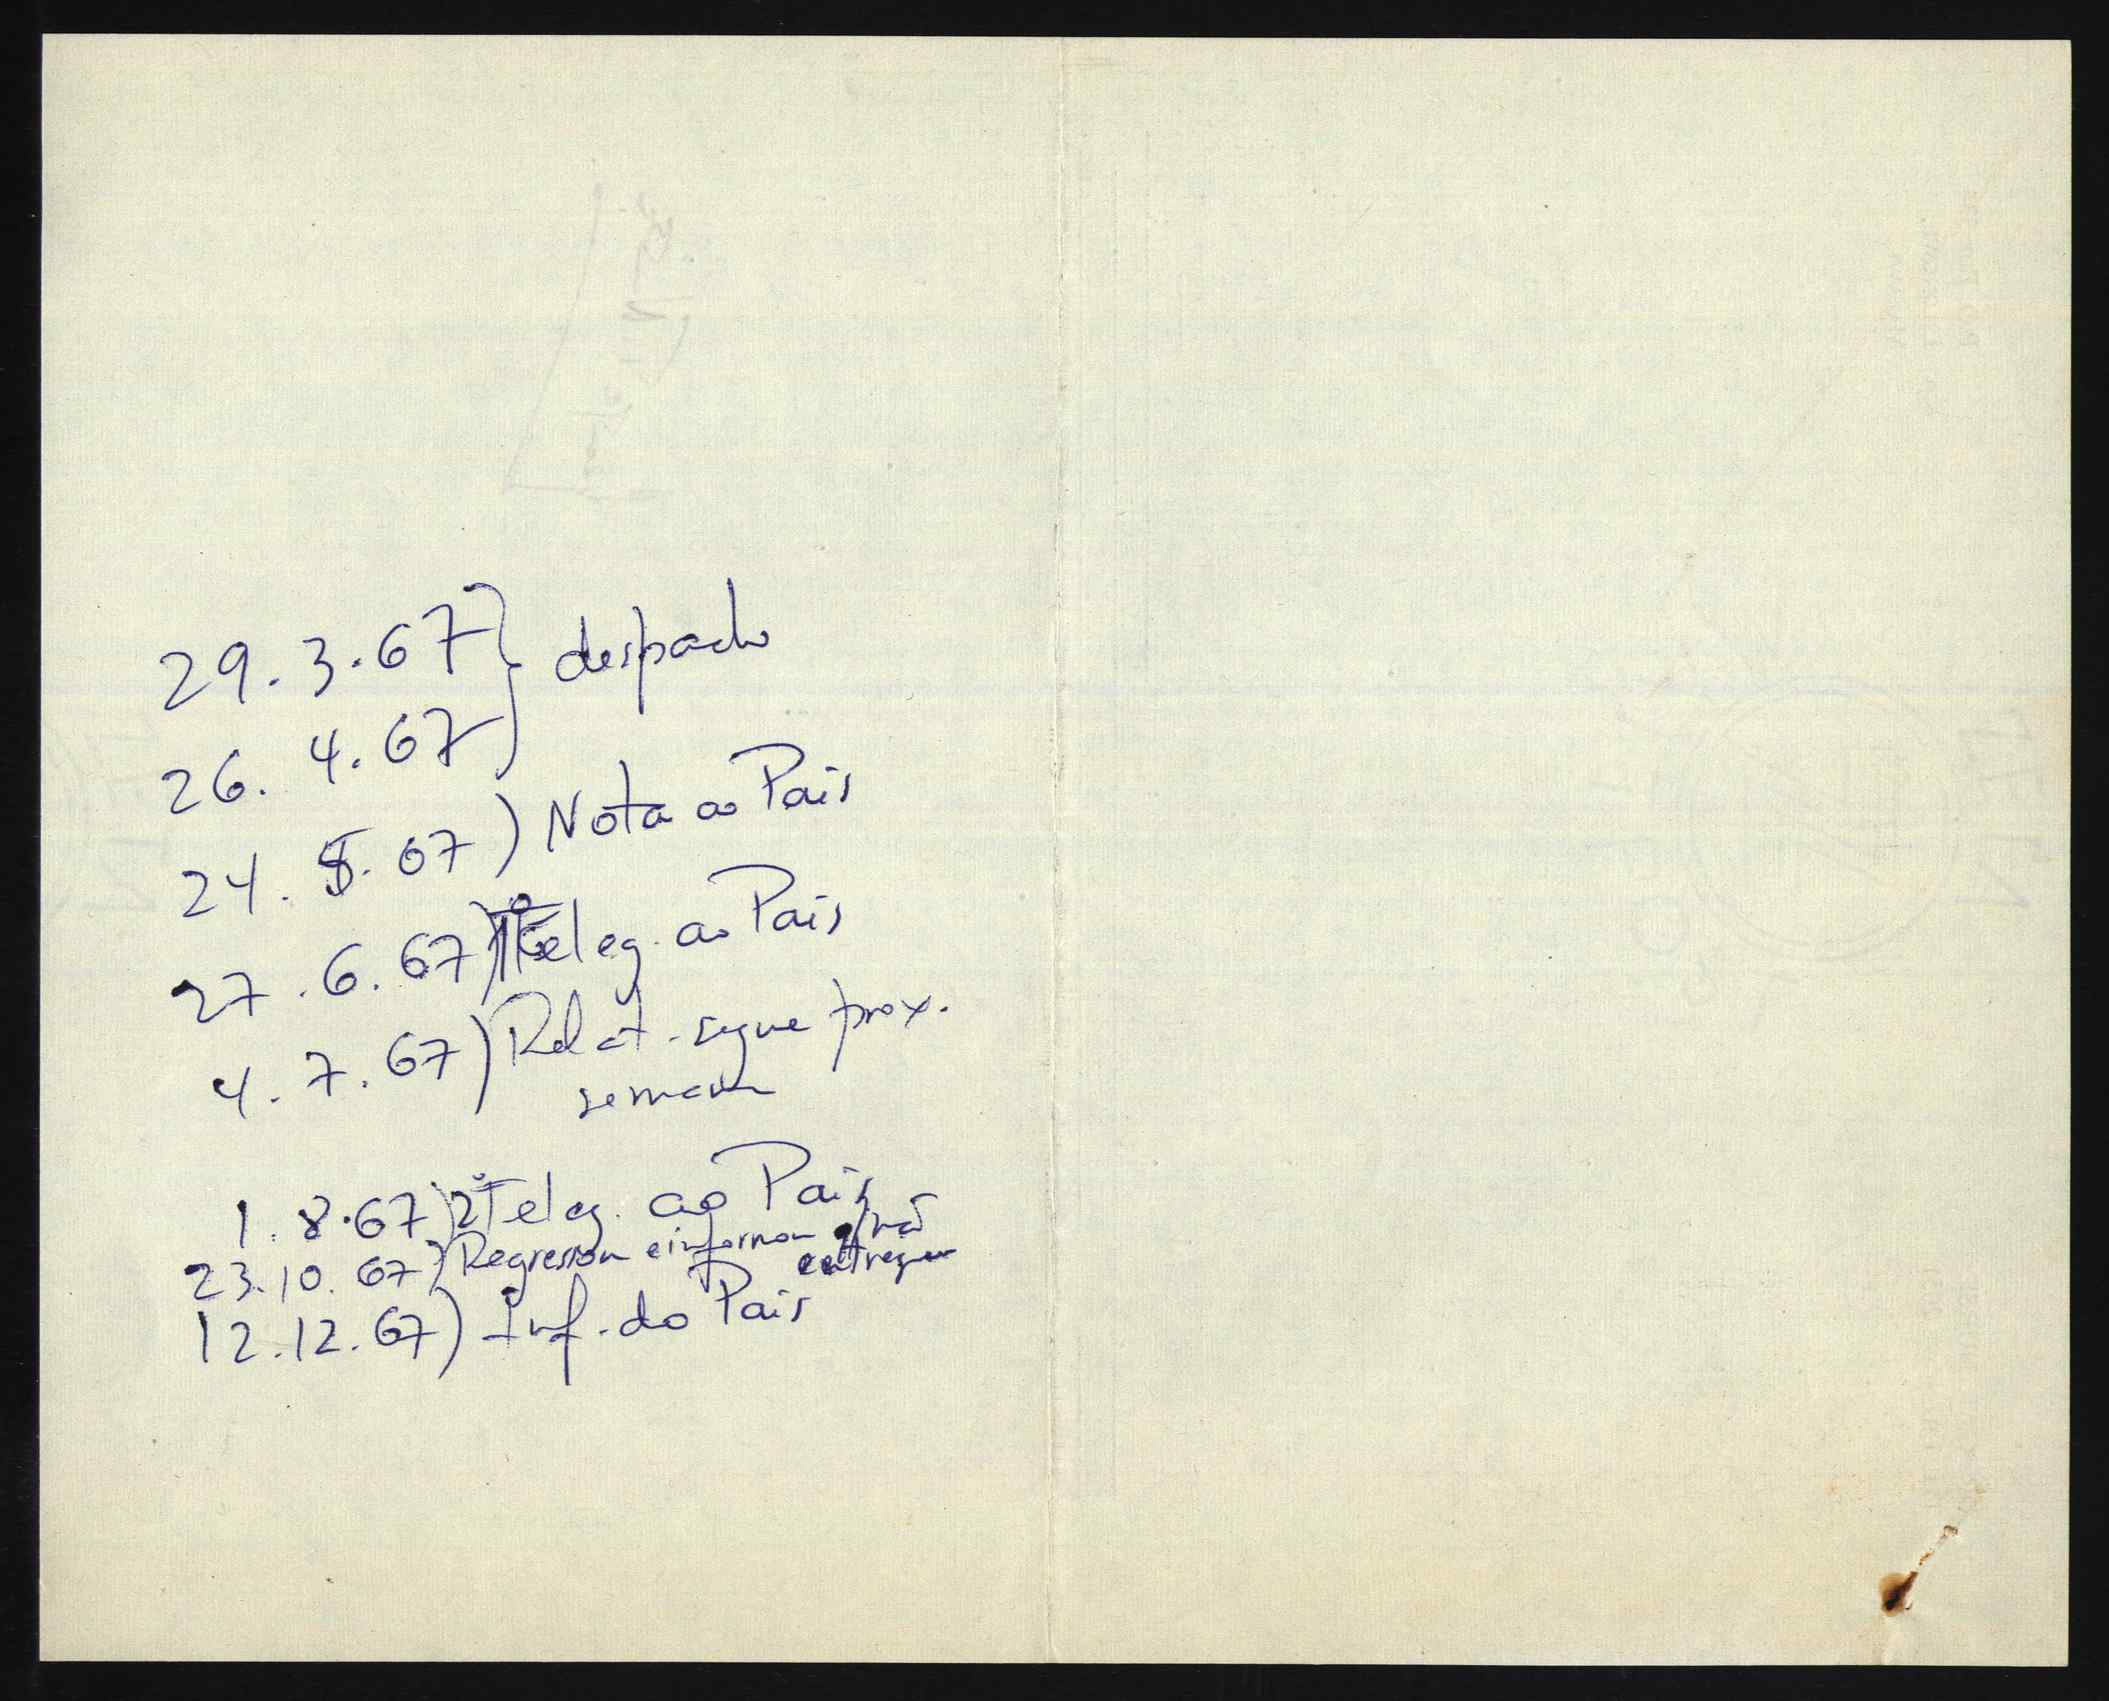 29.3.67 } despacho
26. 4. 67
24. 5. 67) Nota ao Pais
27.6.67) 1º Teleg. ao Pais
4. 7. 67) Relat. segue prox.
semana
1. 8. 67) 2º Teleg. ao Pais
23.10.67) Regressou e informou q/ não
entregou
12.12.67) Inf. do Pais